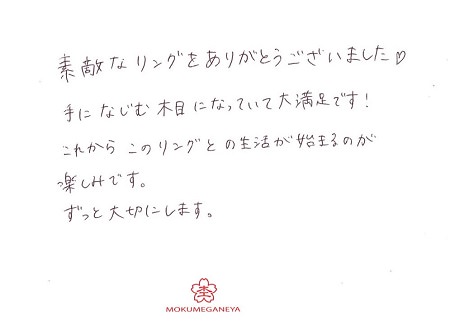 素敵なリングをありがとうございました♡
手になじむ木目になっていて大満足です!
これからこのリングとの生活が始まるのが
楽しみです。
ずっと大切にします。
MOKUMEGANEYA